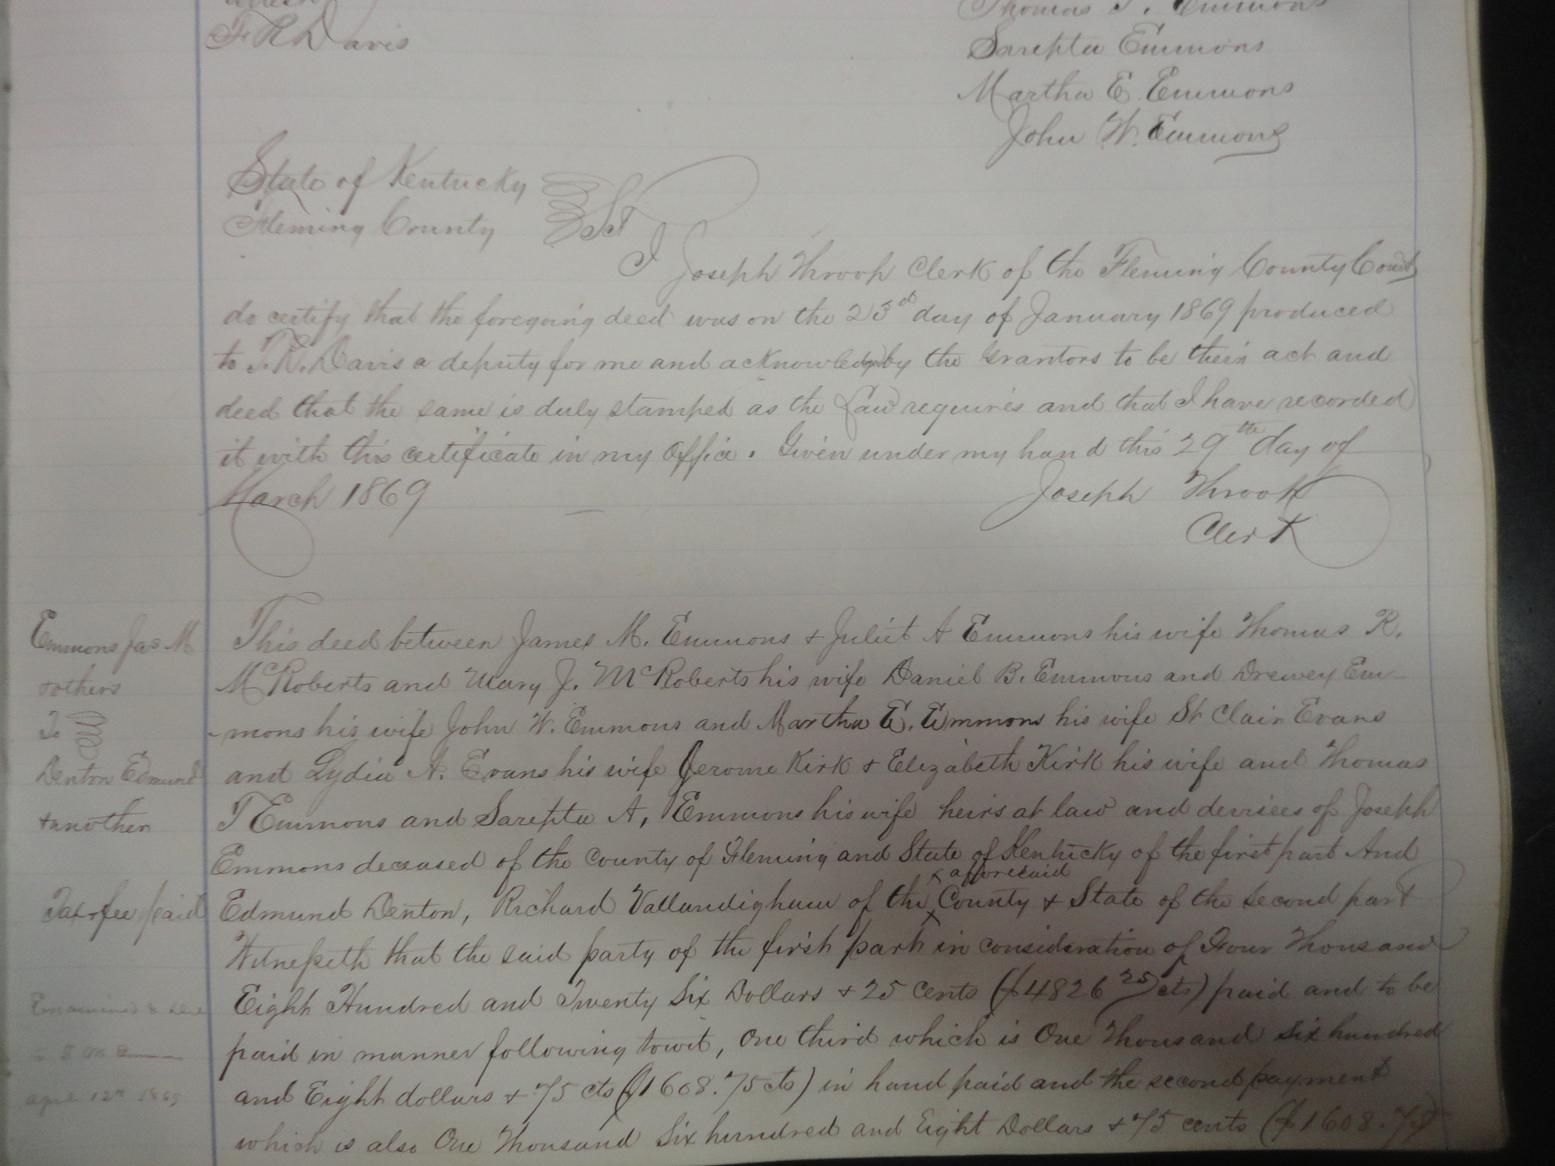 F R Davis
Thomas T. Emmons
Sarepta Emmons
Martha E. Emmons
John W. Emmons
State of Kentucky
Fleming County Sct
I Joseph Throop Clerk of the Fleming County Court
do certify that the foregoing deed was on the 23d day of January 1869 produced
to F. R. Davis a deputy for me and acknowledg by the Grantors to be their act and
deed that the same is duly stamped as the Law requires and that I have recorded
it with this certificate in my Office. Given under my hand this 29th day of
March 1869
Joseph Throop
Clerk
Emmons Jas M
& others
To
Denton Edmund
& another
Tax & fee paid
Examined &
April 12th 1869
This deed between James M. Emmons & Juliet A Emmons his wife Thomas R.
McRoberts and Mary J. McRoberts his wife Daniel B. Emmons and Drewey Em-
-mons his wife John W. Emmons and Martha E. Emmons his wife St Clair Evans
and Lydia A. Evans his wife Jerome Kirk & Elizabeth Kirk his wife and Thomas
T Emmons and Sarepta A, Emmons his wife heirs at law and devisees of Joseph
Emmons deceased of the County of Fleming and State of Kentucky of the first part And
Edmund Denton, Richard Vallandigham of the afforesaid County & State of the second part
Witnesseth that the said party of the first part in consideration of Four Thousand
Eight Hundred and Twenty Six Dollars & 25 cents ($4826 25/cts) paid and to be
paid in manner following towit, One third which is One Thousand Six hundred
and Eight dollars & 75 cts ($1608.75cts) in hand paid and the second payment
which is also One Thousand Six hundred and Eight Dollars & 75 cents ($1608.75)